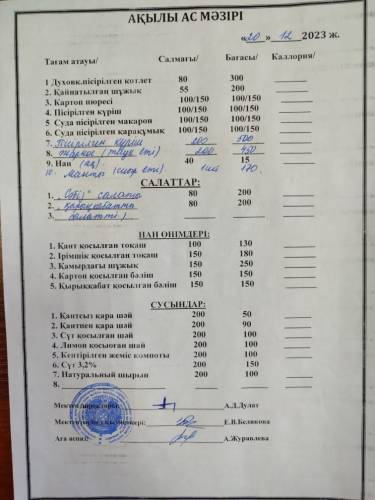 АҚЫЛЫ АС МӘЗІРІ
«20» 12 2023 ж.
Тағам атауы/ Салмағы/ Бағасы/ Каллория/
1 Духовк.пісірілген котлет 80 300
2. Қайнатылған шұжық 55 200
3. Картоп пюресі 100/150 100/150
4. Пісірілген күріш 100/150 100/150
5 Суда пісірілген макарон 100/150 100/150
6. Суда пісірілген қарақұмық 100/150 100/150
7. Пісірілген күріш 200 500
8. (тауық еті) 200 450
9. Нан (ақ) 40 15
10. Манты (сиыр еті). 1шт 170.
САЛАТТАР:
1. "Сәбіз" салаты 80 200
2. 80 200
3. салаты)
НАН ӨНІМДЕРІ:
1. Қант қосылған тоқаш 100 130
2. Ірімшік қосылған тоқаш 150 180
3. Қамырдағы шұжық 150 250
4. Картоп қосылған бәліш 150 150
5. Қырыққабат қосылған бәліш 150 150
СУСЫНДАР:
1. Қантсыз қара шай 200 50
2. Қантпен қара шай 200 90
3. Сүт қосылған шай 200 100
4. Лимон қосылған шай 200 100
5. Кептірілген жеміс компоты 200 100
6. Сүт 3,2% 200 150
7. Натуральный шырын 200 100
8.
Мектеп директоры: А.Д.Дулат
Е.В.Белякова
Аға аспаз: А.Журавлева